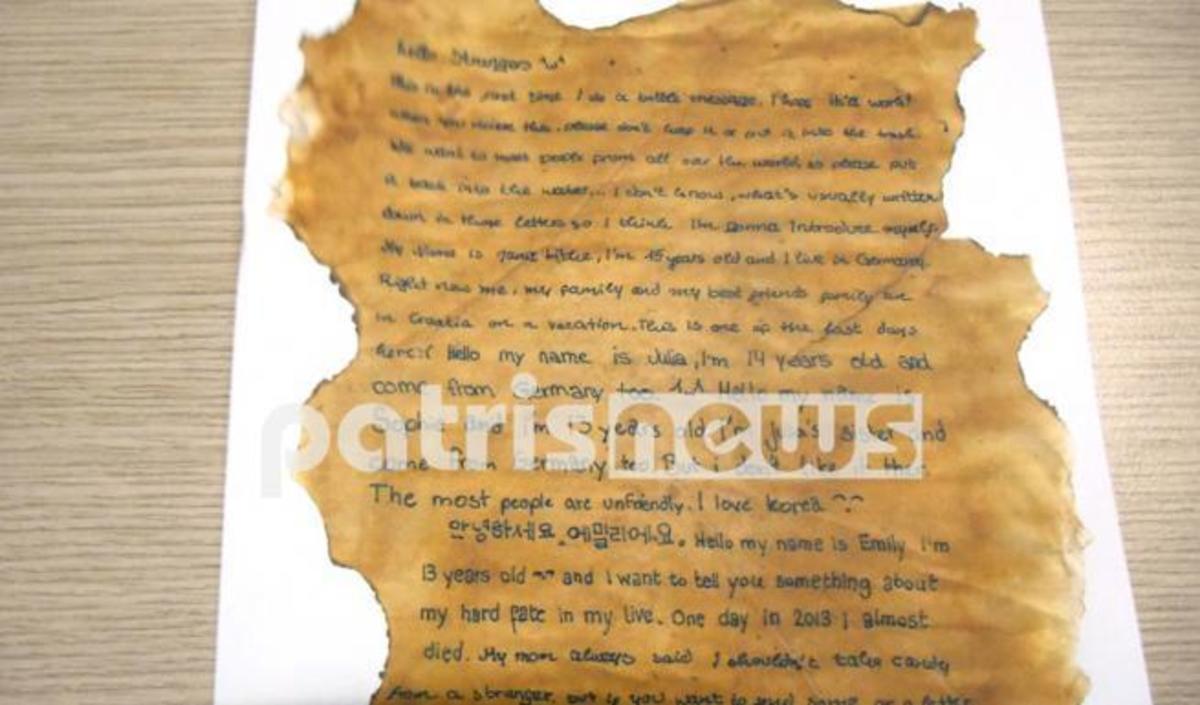 Hello Strangers
This is the first time I do a bottle message. I hope it'll work!
When you receive this, please don't keep it or put it into the trash.
We want to meet people from all over the world so please put
it back into the water... I don't know, what's usually written
down in those letters so I think I'm gonna introduce myself.
My Name is, I'm 15 years old and I live in Germany.
Right now me, my family and my best friends family are
in Croatia on a vacation. This is one of the last days
here:( Hello my name is Julia, I'm 14 years old and
come from Germany too. ^^ Hello my name is
Sophie and I'm 13 years old. I'm Julia's sister and
come from Germany too. But I don't like it
patrisnews
The most people are unfriendly. I love Korea ^^
안녕하세요. 에밀리에요. Hello my name is Emily I'm
13 years old and I want to tell you something about
my hard fate in my live. One day in 2013 I almost
died. My mom always said I shouldn't take candy
from a stranger, but if you want to send some or a letter